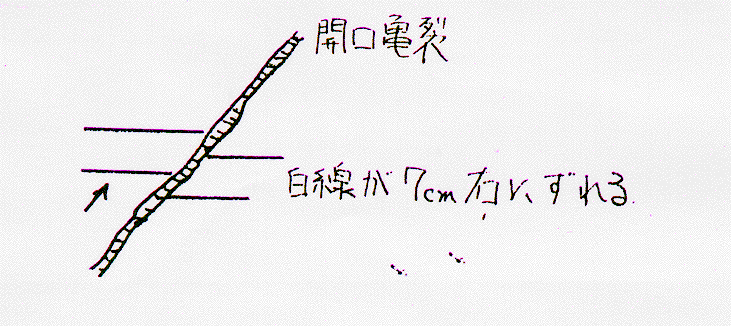 開口亀裂
白線が7cm右にずれる